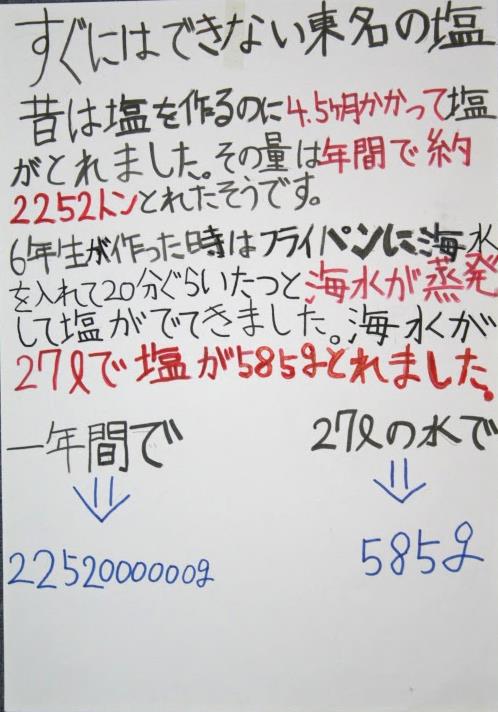 すぐにはできない東名の塩
昔は塩を作るのに4.5ヶ月かかって塩
がとれました。その量は年間で約
2252トンとれたそうです。
6年生が作った時はフライパンに海水
を入れて20分ぐらいたつと海水が蒸発
して塩がでてきました。海水が
27ℓで塩が585gとれました。
一年間で
27ℓの水で
⇓
⇓
2252000000g
585g